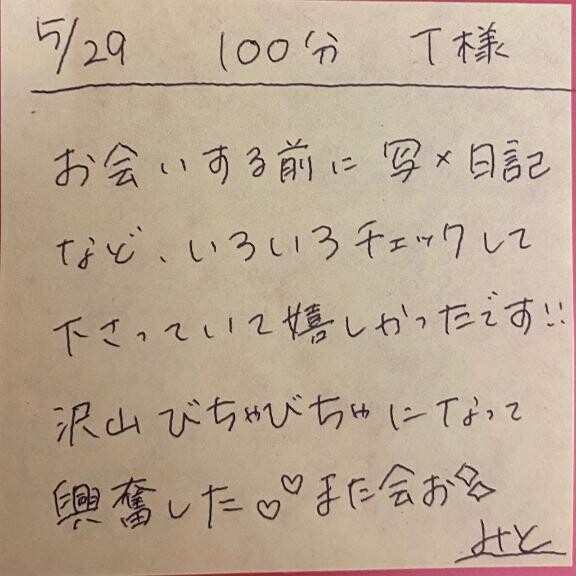 5/29 100分 T様
お会いする前に写メ日記
など、いろいろチェックして
下さっていて嬉しかったです!!
沢山びちゃびちゃになって
興奮した♡♡また会お
みと